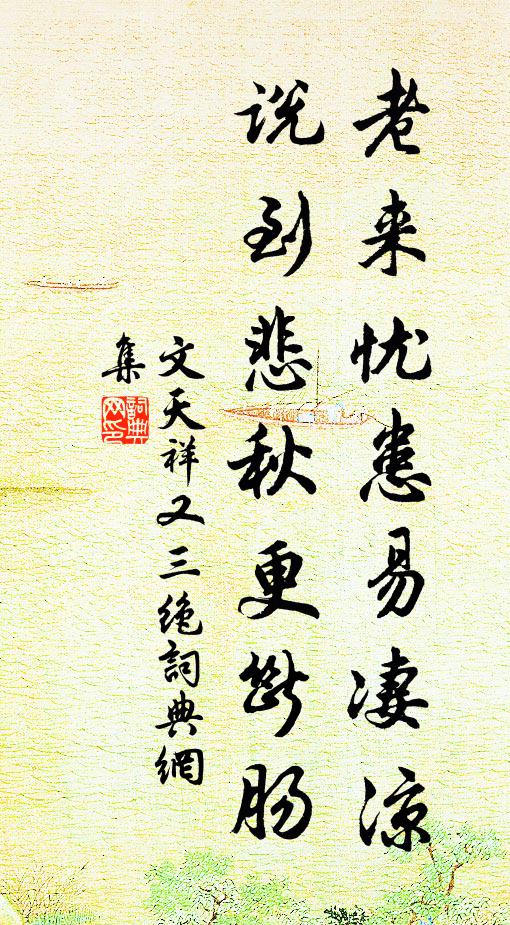 老来忧患易凄凉
说到悲秋更断肠
文天祥又三绝詞典網
集
詞典
网印